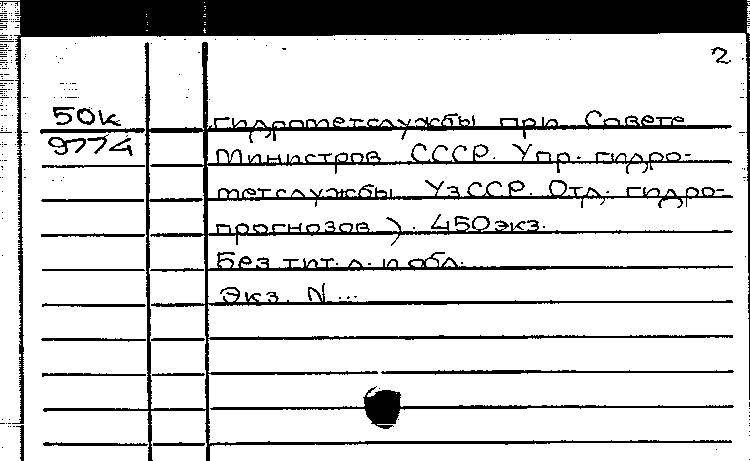 2
50к гидрометслужбы при Совете
9774 Министров СССР. Упр. гидро-
метслужбы УзССР. Отд. гидро-
прогнозов). 450экз.
Без тит. л. и обл.
Экз. N ...